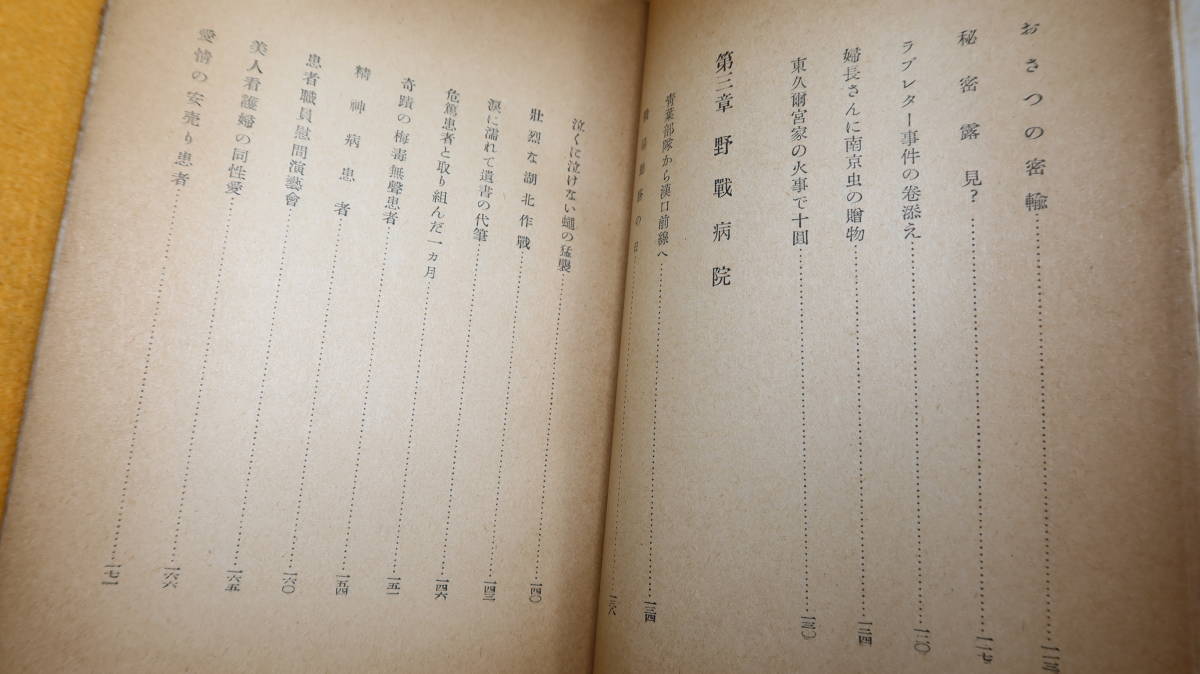 おさつの密輸……一一五
秘密露見?……一一七
ラブレター事件の卷添え……一二〇
婦長さんに南京虫の贈物……一二四
東久爾宮家の火事で十圓……一三〇
第三章 野戰病院
靑葉部隊から漢口前線へ……一三四
の日……一三八
泣くに泣けない蠅の猛襲……一四〇
壯烈な湖北作戰……一四三
淚に濡れて遺書の代筆……一四六
危篤患者と取り組んだ一ヵ月……一五一
奇蹟の梅毒無聲患者……一五四
精神病患者……一六〇
患者職員慰問演藝會……一六五
美人看護婦の同性愛……一六六
愛情の安売り患者……一七一